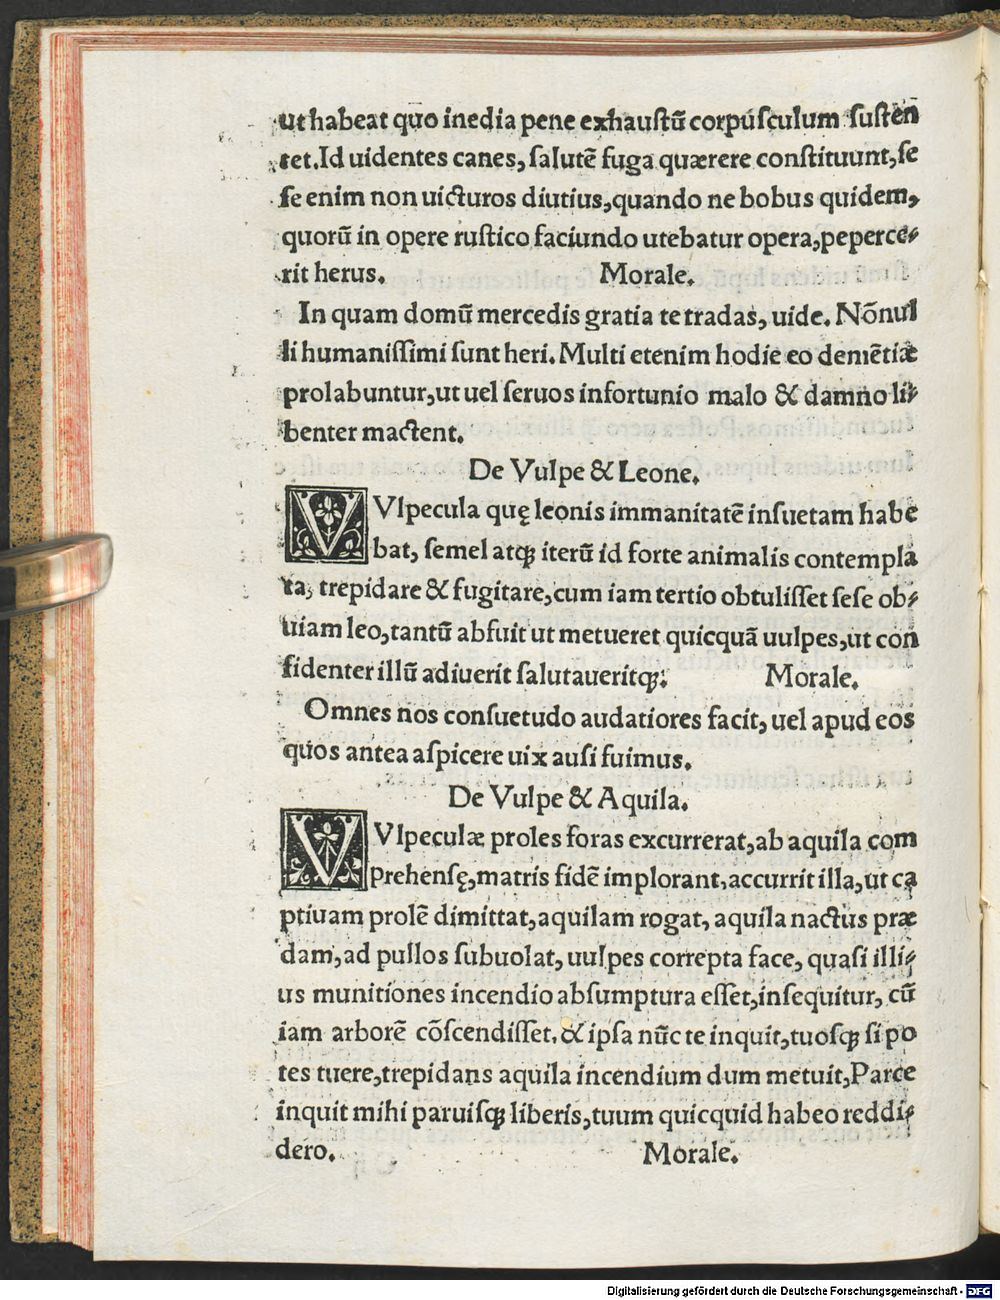 ut habeat quo inedia pene exhaustū corpusculum susten
tet.Id uidentes canes, salutē fuga quærere constituunt,se
se enim non uicturos diutius,quando ne bobus quidem,
quorū in opere rustico faciundo utebatur opera,peperce⸗
rit herus. Morale.
In quam domū mercedis gratia te tradas, uide. Nōnul
li humanissimi sunt heri. Multi etenim hodie eo demētiæ
prolabuntur,ut uel seruos infortunio malo & damno li⸗
benter mactent.
De Vulpe & Leone.
VVlpecula quę leonis immanitatē insuetam habe
bat, semel atqꝫ iterū id forte animalis contempla
ta, trepidare & fugitare,cum iam tertio obtulisset sese ob⸗
uiam leo,tantū abfuit ut metueret quicquā uulpes,ut con
fidenter illū adiuerit salutaueritqꝫ. Morale.
Omnes nos consuetudo audatiores facit, uel apud eos
quos antea aspicere uix ausi fuimus.
De Vulpe & Aquila.
VVlpeculæ proles foras excurrerat,ab aquila com
prehensę,matris fidē implorant,accurrit illa,ut ca
ptiuam prolē dimittat,aquilam rogat, aquila nactus præ
dam,ad pullos subuolat, uulpes correpta face, quasi illi⸗
us munitiones incendio absumptura esset,insequitur, cū
iam arborē cōscendisset, & ipsa nūc te inquit,tuosqꝫ si po
tes tuere,trepidans aquila incendium dum metuit,Parce
inquit mihi paruisqꝫ liberis,tuum quicquid habeo reddi⸗
dero. Morale.
Digitalisierung gefördert durch die Deutsche Forschungsgemeinschaft - DFG